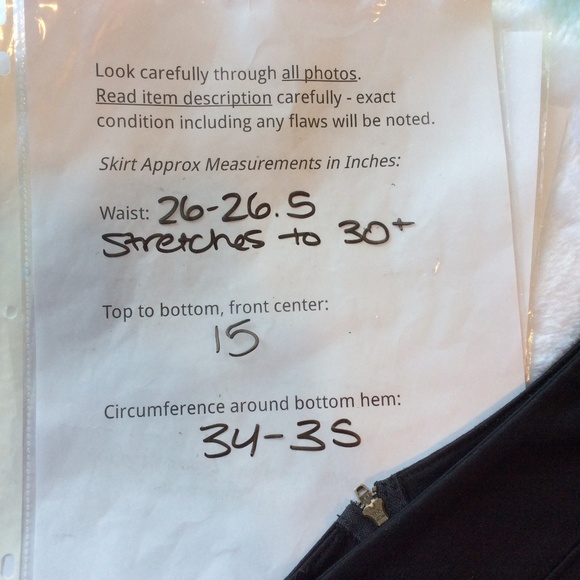 Look carefully through all photos.
Read item description carefully - exact
condition including any flaws will be noted.
Skirt Approx Measurements in Inches:
Waist: 26-26.5
Stretches to 30+
Top to bottom, front center:
15
Circumference around bottom hem:
34-35